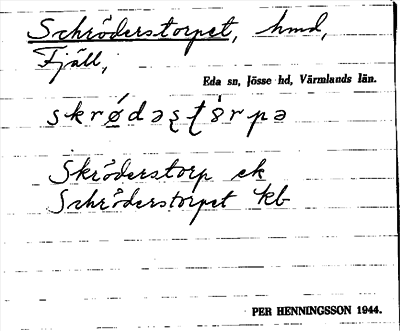 Schröderstorpet, hmd,
Fjäll,
Eda sn, Jösse hd, Värmlands län.
Skröderstorp ek
Schröderstorpet kb
PER HENNINGSSON 1944.